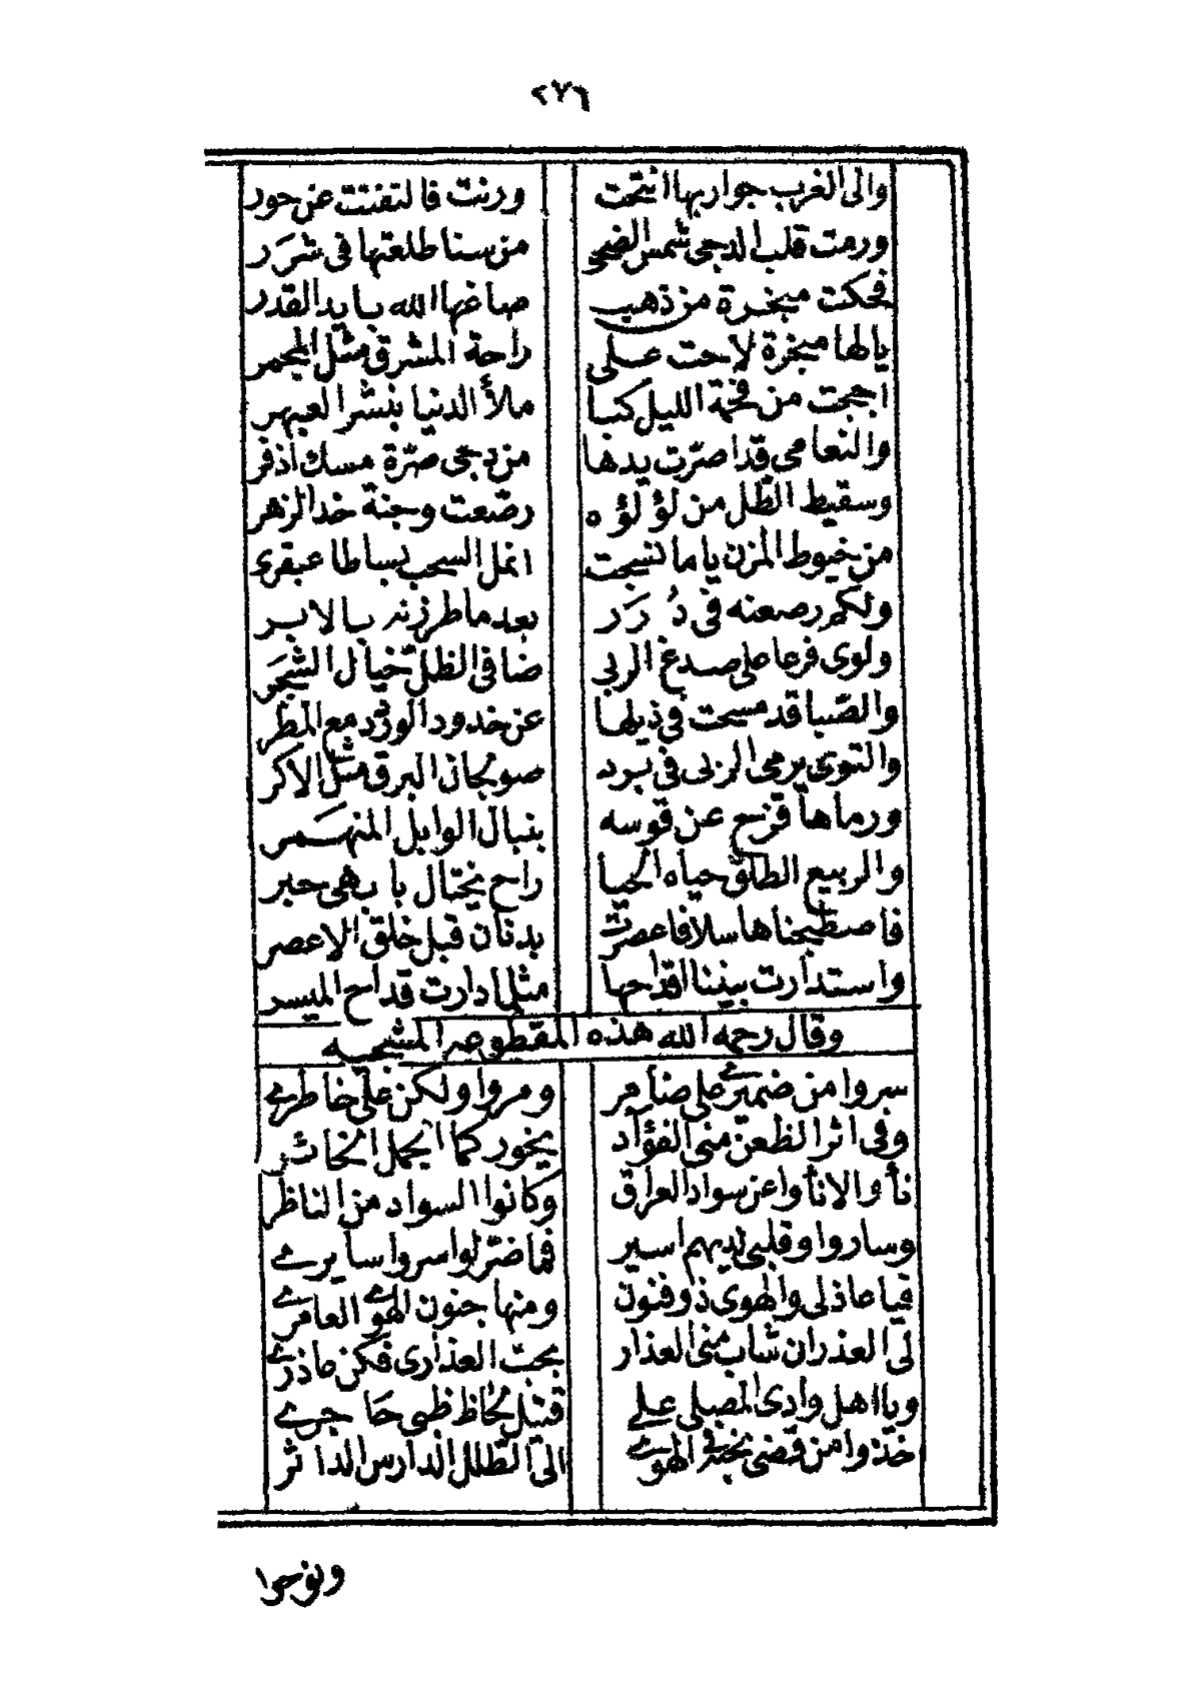 ٢٧٦
والى الغرب جواريها انتحت ورنت فالتفتت عن حور
ورمت قلب الدجى شمس الضحى من سنا طلعتها فى شرَر
فحكت مبخرة من ذهب صاغها الله بايد القدر
يالها مبخرة لاحت على راحة المشرق مثل المجمر
اججت من فحمة الليل كبا ملأ الدنيا بنشر العبهر
والنعامى قد اصرّت يدها من دجى صرّة مسك اذفر
وسقيط الطّل من لؤلؤه رصّعت وجنة خد الزهر
من خيوط المزن ياما نسجت انمل السحب بساطا عبقرى
ولكم رصعنه فى دُرَر بعد ما طرزنه بالابر
ولوى فرعا على صدغ الربى ضافى الظلّ خيال الشجَر
والصّبا قد مسحت فى ذيلها عن خدود الورد مع المطر
والتوى يرمى الربى فى برد صولجان البرق مثل الاكر
ورماها قزح عن قوسه بنبال الوابل المنهَمر
والربيع الطلق حياه الحيا راح يختال بابهى حبر
فاصطبحناها سلافا عصرت بدنان قبل خلق الاعصر
واستدارت بيننا اقداحها مثلما دارت قداح الميسر
وقال رحمه الله هذه المقطوعه المشجيه
سروا من ضميرى على ضامر ومروا ولكن على خاطرى
وفى اثر الظعن منى الفؤاد يخور كما الجمل الخائر
نأوا لا نأوا عن سواد العراق وكانوا السواد من الناظر
وساروا وقلبى لديهم اسير فما ضرّ لو اسروا سايرى
فيا عاذلى والهوى ذو فنون ومنها جنون الهوى العامرى
لى العذر ان شاب منى العذار بحب العذارى فكن عاذرى
ويا اهل وادى المصلى على قتيل لحاظ ظبى حاجرى
خذوا من قضى نحبه فى الهوى الى الطلل الدارس الداثر
ونوحوا